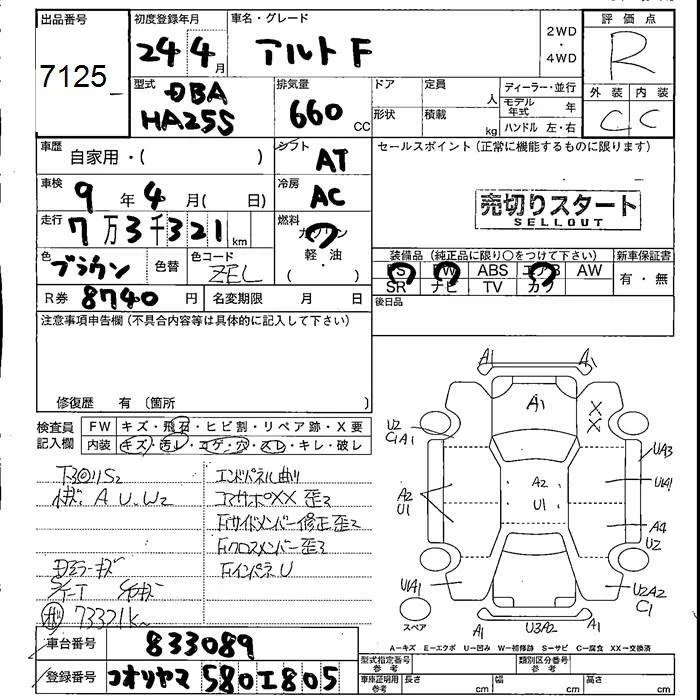 出品番号
7125
初度登録年月
24 4 月
車名・グレード
アルト F
2WD
・
4WD
評価点
R
外装 内装
C C
型式
DBA
HA25S
排気量
660 CC
ドア
形状
定員 人
積載 kg
ディーラー・並行
モデル年式 年
ハンドル 左・右
車歴
自家用・( )
シフト
AT
車検
9 年 4 月( 日)
冷房
AC
走行
7万3千321 km
燃料
ガソリン
軽・油
( )
色
ブラウン
色替
色コード
ZEL
R券 8740 円
名変期限 月 日
セールスポイント(正常に機能するものに限ります)
売切りスタート
SELLOUT
装備品(純正品に限り○をつけて下さい)
新車保証書
PS PW ABS エアB AW
SR ナビ TV カワ
有・無
後日品
注意事項申告欄(不具合内容等は具体的に記入して下さい)
修復歴 有 (箇所 )
検査員
記入欄
FW キズ・飛石・ヒビ割・リペア跡・X要
内装 キズ・汚レ・コゲ・穴・スレ・キレ・破レ
A U.W2
エンドパネル曲り
コアサポXX 歪2
Fサイドメンバー修正歪2
Fクロスメンバー歪2
FインパネU
73321K
A1 A1
A1
XX
U2
A1
UA3
U1A1
A2
U1
A2
U1
A4
U2
U1A1
U2A2
C1
A1 U3A2 A1
スペア
A−キズ E−エクボ U−凹み W−補修跡 S−サビ C−腐食 XX−交換済
車台番号 833089
登録番号 コオリヤマ 580 エ 805
型式指定番号
参考
類別区分番号
参考
車庫証明用
参考
長さ cm
幅 cm
高さ cm